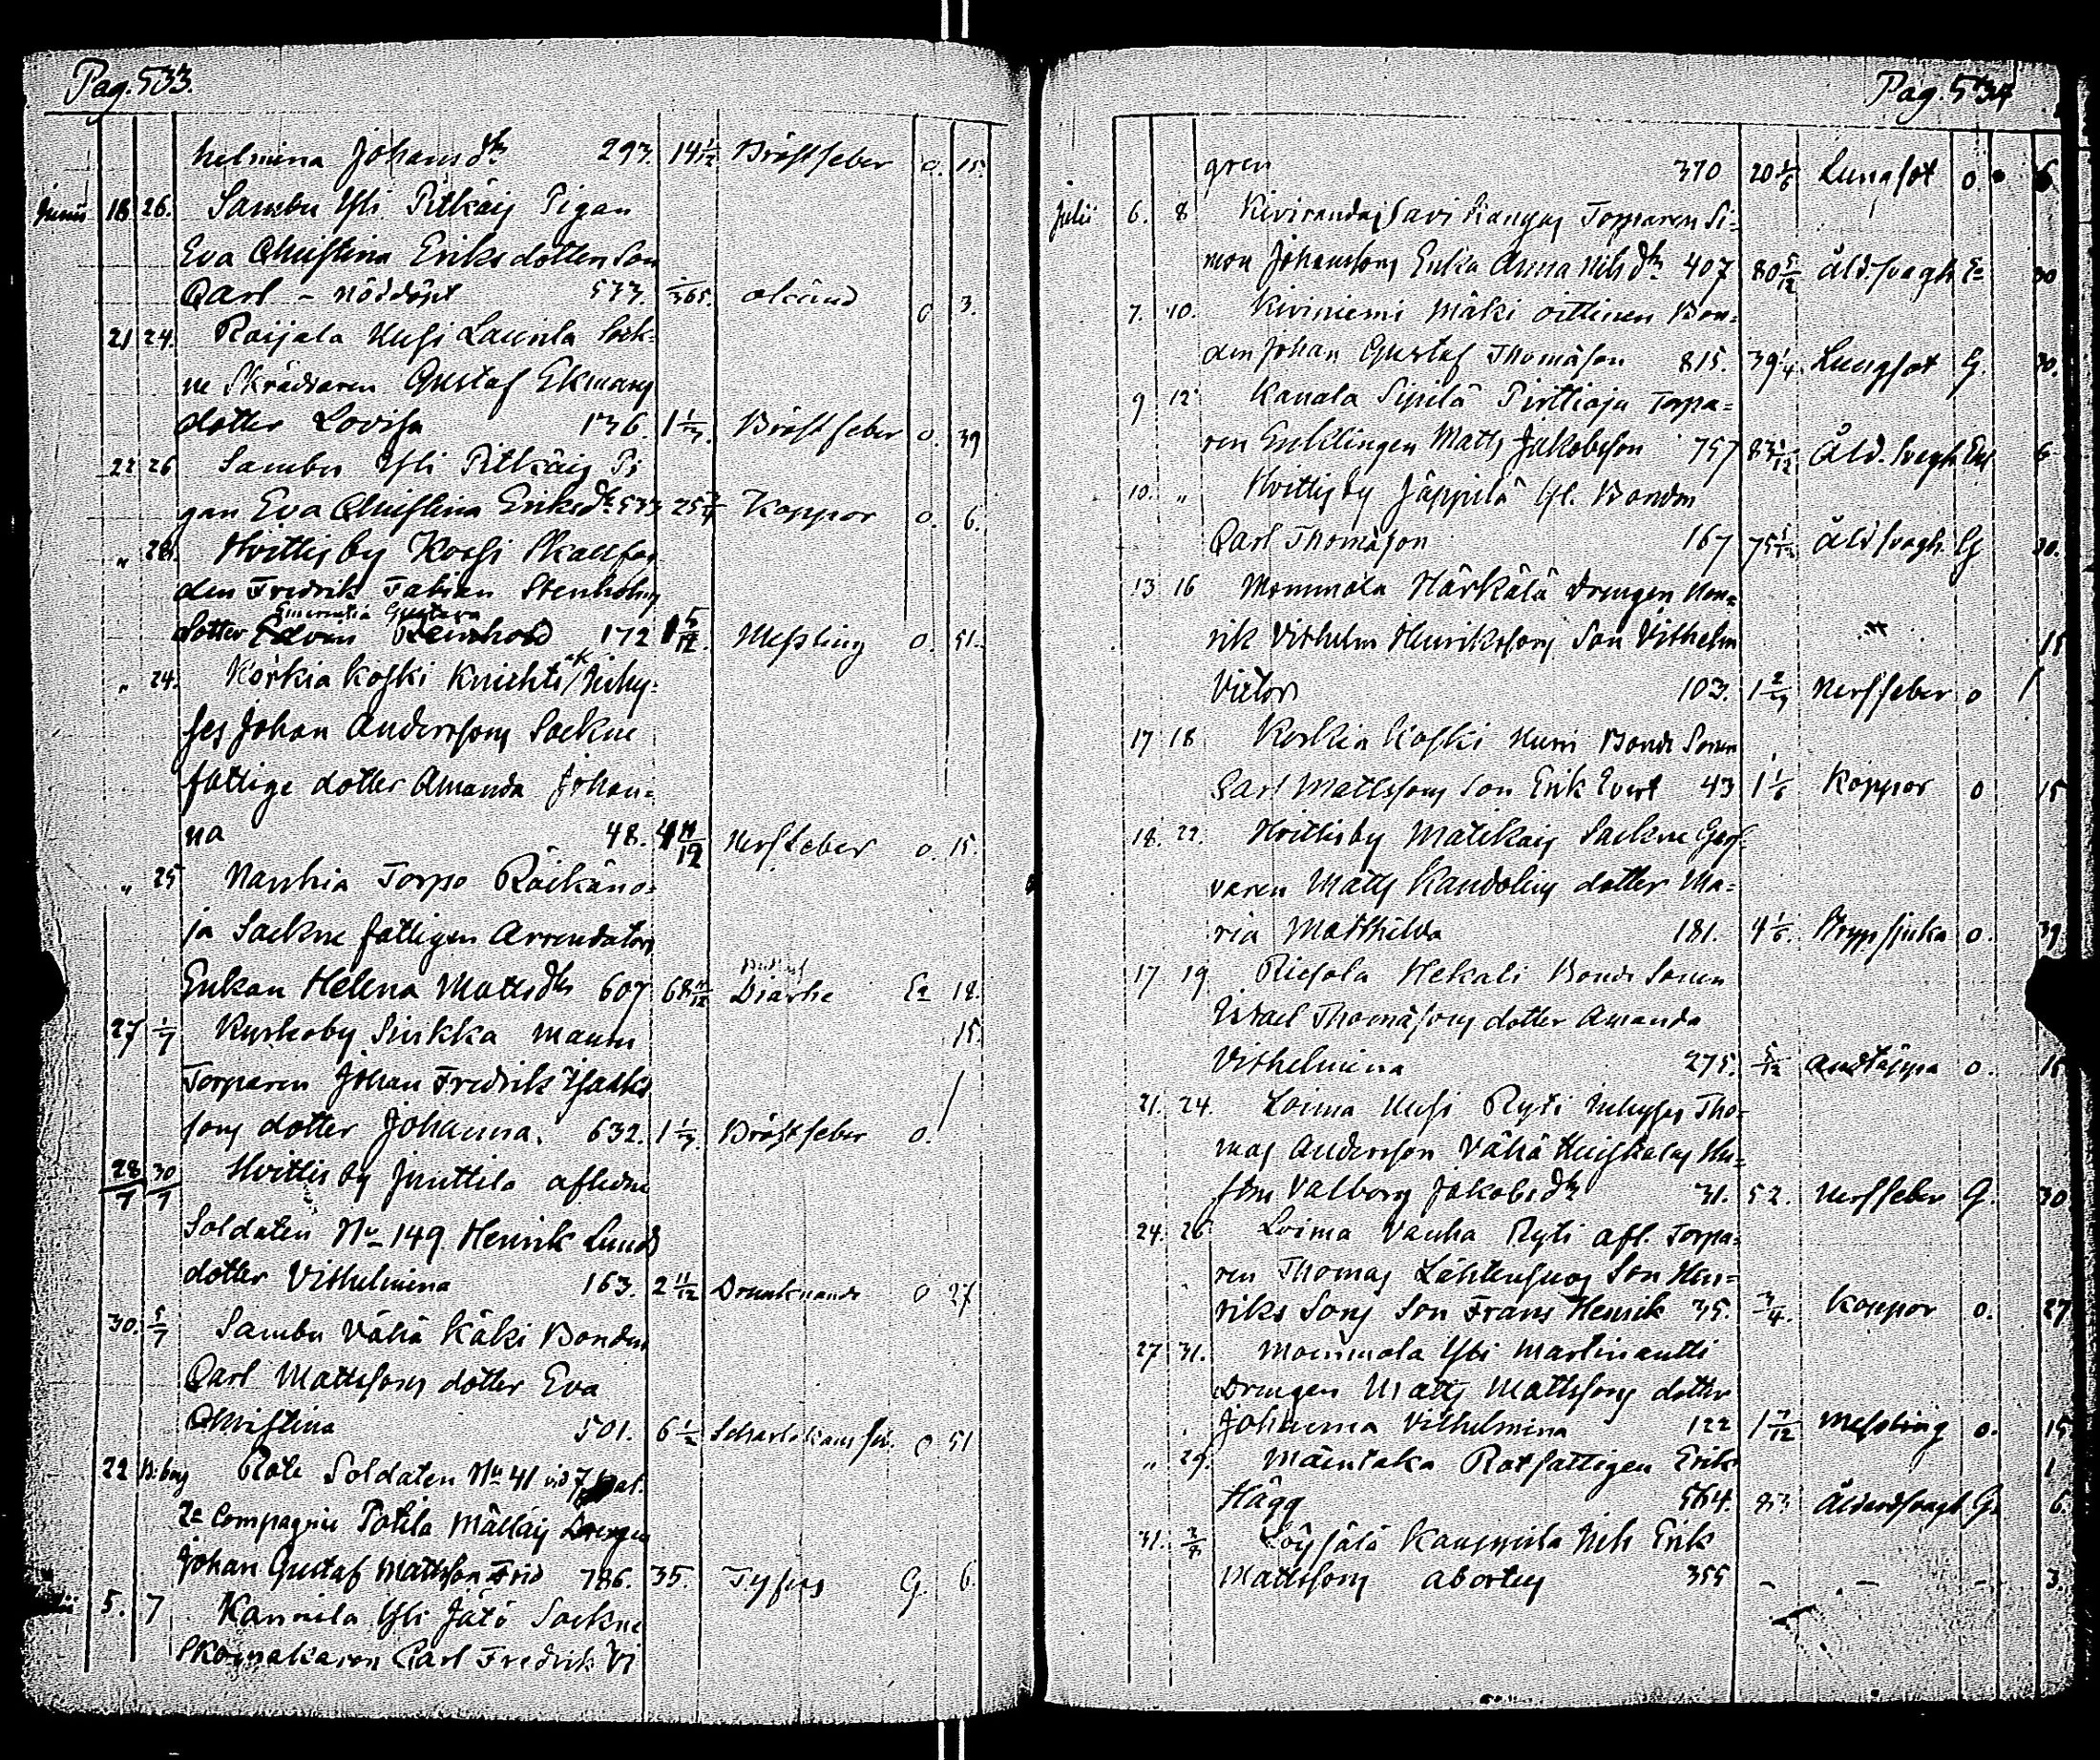 Pag. 533.
helmina Johansdtr 293. 14 1/12 Bröstfeber o. 15.
Junii 18 26. Sambu Yli Pitkäis Pigan
Eva Christina Eriksdotters Son
Carl - nöddöpt 533. /365. okänd o 3.
21 24. Raijala Uusi Laurila Sock-
ne Skräddaren Gustaf Ekmans
dotter Lovisa 136. 1 1/3. Bröstfeber o. 39
22 26 Sambu Yli Pitkäis Pi
gan Eva Christina Eriksdr 533 25 Koppor o. 6.
" 28. Hvittis by Koski
den Fredrik Fabian Stenholms
Gustava
dotter 172 1 5/12. Messling o. 51.
" 24. Korkiakoski Knihti Inhy-
ses Johan Anderssons Sockne
fattige dotter Amanda Johan-
na 48. 4 11/12 Nerffeber o. 15.
" 25 Naurhia Torpo Räikäno-
ja Sockne fattigen Arrendators
Enkan Helena Mattsdtr 607 68 11/12 Diarhe E: 18.
27 1/7 Kyrkoby Sirkka Maun 15.
Torparen Johan Fredrik Isaks
sons dotter Johanna. 632. 1 1/3. Bröstfeber o.
28/7 30/7 Hvittis by Junttila afskedne
Soldaten No 149 Henrik Lunds
dotter Vilhelmina 163. 2 11/12 Drunknande o 27
30. 5/7 Sambu Vähä Käki Bonden
Carl Mattssons dotter Eva
Christina 501. 6 1/2 Scharlakansfeb. o 51
22 Rote Soldaten No 41 vid 7
2a Compagnie Potila Mälläis Drengen
Johan Gustaf Mattsson Frid 786. 35. Tyfus G. 6.
5. 7 Karnila Yli Jäto Sockne
Skomakaren Carl Fredrik Vi
Pag. 534
gren 370 20 1/6 Lungsot o. 6
Julii 6. 8 Kiviranda Savikangas Torparen Si-
mon Johanssons Enka Anna Nilsdtr 407 80 5/12 Åld.svagh E: 30
7. 10. Kiviniemi Mäki Oittinen Bon-
den Johan Gustaf Thomasson 815. 39 1/4. Lungsot G. 30.
9 12 Kanala Sipilä Pirttioja Torpa-
ren Enklingen Matts Jakobsson 757 83 1/12 Åld. svagh Enk 6
10. " Hvittisby Jäppilä Gl. Bonden
Carl Thomasson 167 75 Åld svagh. G 30.
13 16 Mommola Härkälä Drengen Hen-
rik Vilhelm Henrikssons Son Vilhelm 15
Victor 103. 1 2/3 Nerffeber o
17 18 Korkia Koski Nurri Bonde Sonen
Carl Mattssons Son Erik Evert 43 1 1/6 Koppor o 15
18. 22. Hvittisby Matikais Sockne Garf-
varen Matts Kandolins dotter Ma-
ria Mathilda 181. 4 1/6. Strypsjuka o. 39
17 19 Riesola Hekali Bonde Sonen
Israel Thomassons dotter Amanda
Vilhelmina 275. 5/12 Andtäppa o. 15
21. 24. Loima Uusi Ryti Inhyses Tho-
mas Andersson Vähä Huiskalas Hu-
stru Valborg Jakobsdtr 31. 52. Nerffeber G. 30
24. 26 Loima Vanha Ryti afl. Torpa-
ren Thomas Lähteensuos Son Hen-
riks Sons Son Frans Henrik 35. 3/4. Koppor o. 27
27 31. Mommola Yli Martinantti
Drengen Matts Mattssons dotter
Johanna Vilhelmina 122 1 7/12 Messling o. 15
" 29. Mäentaka Rotfattigen Erik
Hägg 564. 83 Ålderdsvagh G. 6
31. 2/8 Löysälä Kauppila Nils Erik
Mattssons abortus 355 - - - 3.